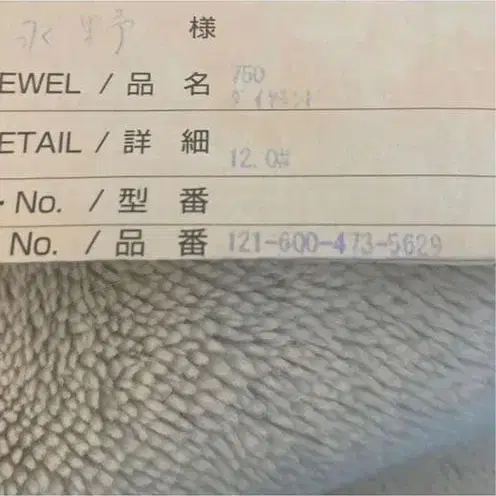 永野 様
EWEL / 品 名 750
ダイヤモンド
ETAIL / 詳 細 12.0#
No. / 型 番
No. / 品 番 121-600-473-5629